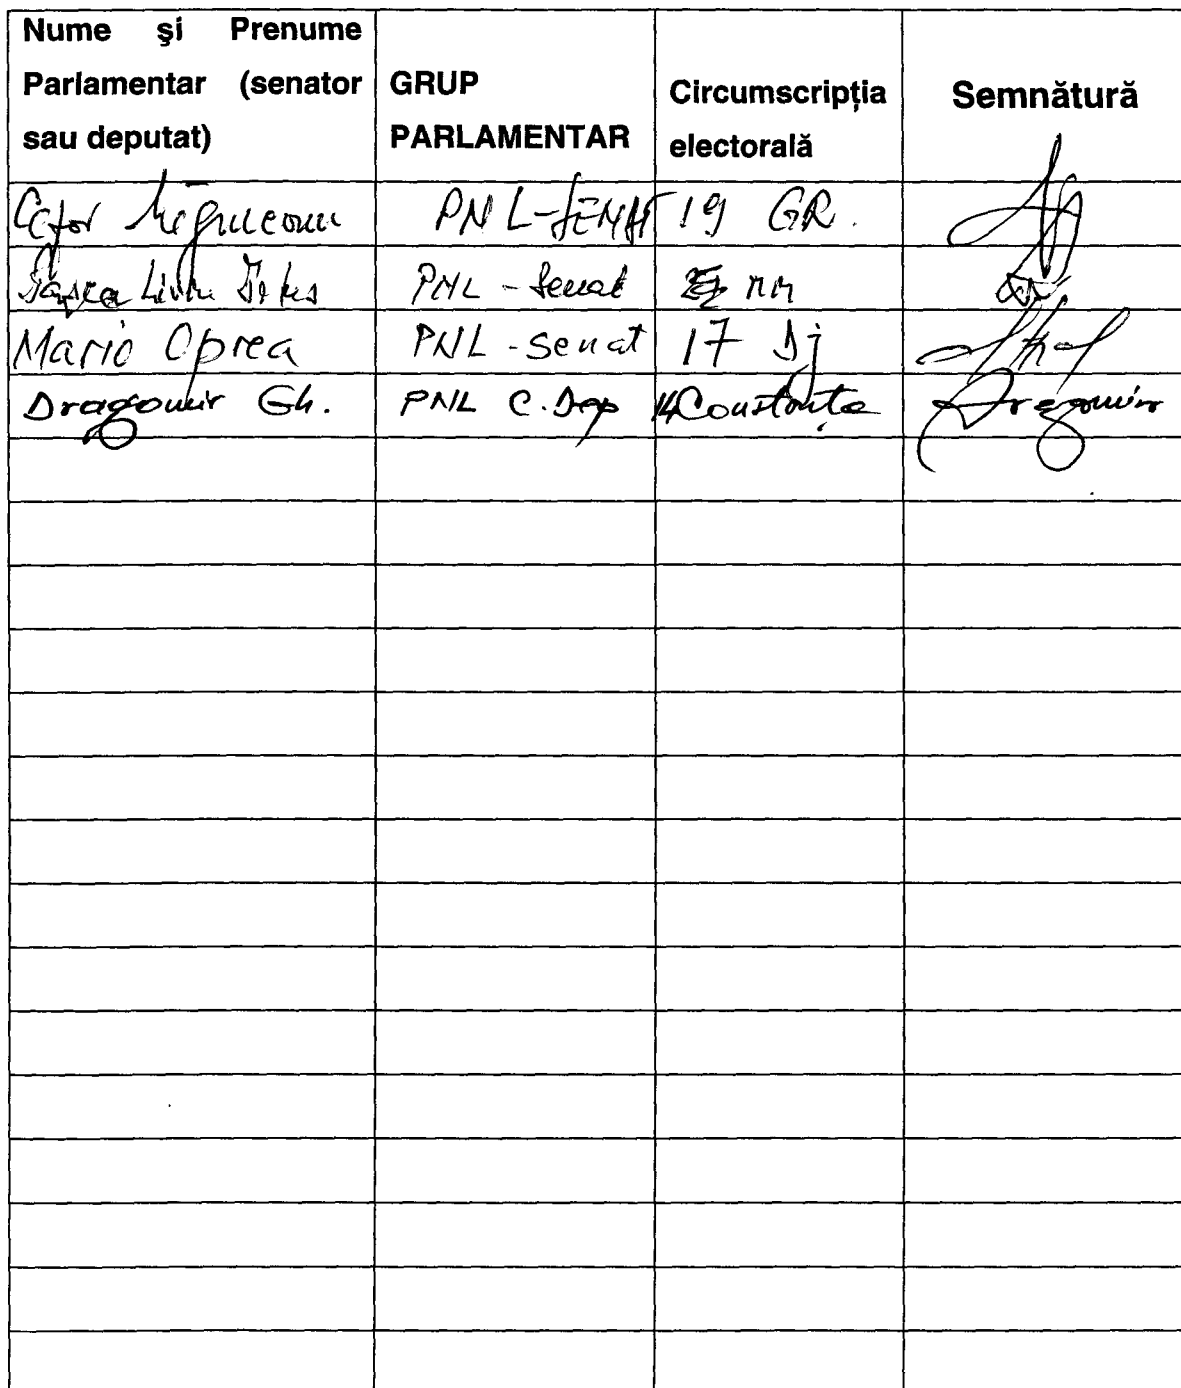 Nume și Prenume
Parlamentar (senator
sau deputat)
GRUP
PARLAMENTAR
Circumscripția
electorală
Semnătură
PNL-SENAT 19 GR.
Liviu Titus PNL - Senat MM
Mario Oprea PNL - senat 17 Dj
Dragomir Gh. PNL C. Dep 14 Constanța Dragomir